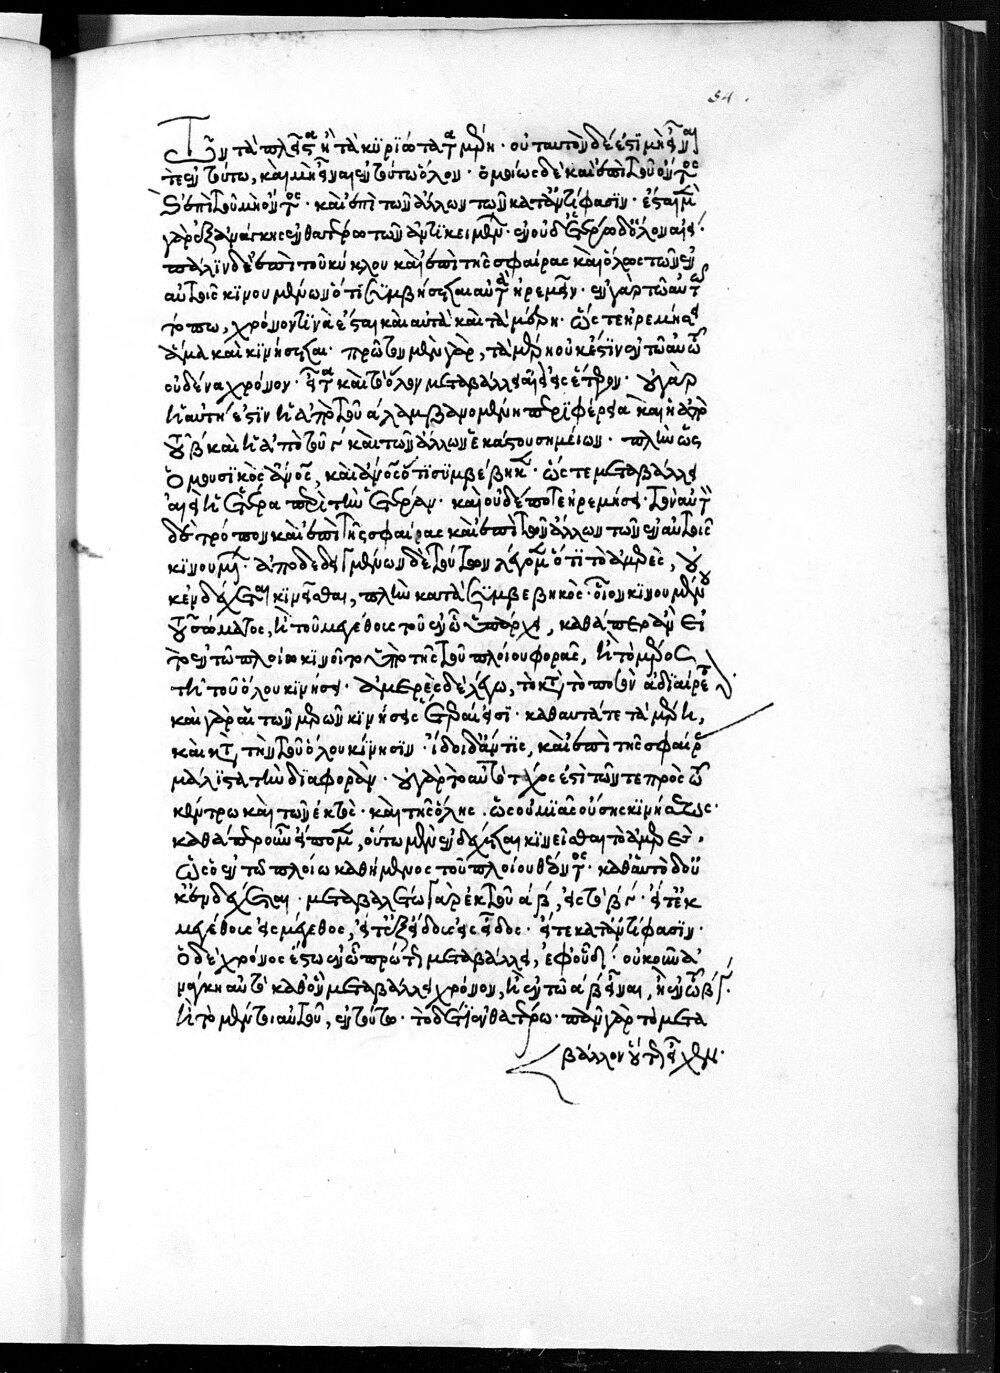 Τῶν τὰ πλεῖστα ἢ τὰ κυριώτατα μέρη· οὐ ταυτὸν δέ ἐστι μὴ εἶναί
τε ἐν τούτω, καὶ μὴ εἶναι ἐν τούτω ὅλον· ὁμοίως δὲ καὶ ἐπὶ τοῦ ὄντος
καὶ ἐπὶ τοῦ μὴ ὄντος· καὶ ἐπὶ τῶν ἄλλων τῶν κατ' ἀντίφασιν· ἔσται μὲν
γὰρ ἐξ ἀνάγκης ἐν θατέρω τῶν ἀντικειμένων· ἐν οὐδετέρω δ' ὅλον αἰεί·
πάλιν δὲ ἐπὶ τοῦ κύκλου καὶ ἐπὶ τῆς σφαίρας καὶ ὅλως τῶν ἐν
αὑτοῖς κινουμένων ὅτι συμβήσεται αὐτὰ ἠρεμεῖν· ἐν γὰρ τῶ αὐτῶ
τόπω, χρόνον τινὰ ἔσται καὶ αὐτὰ καὶ τὰ μέρη· ὥστε ἠρεμήσει
ἅμα καὶ κινήσεται· πρῶτον μὲν γὰρ, τὰ μέρη οὐκ ἔστιν ἐν τῶ αὐτῶ
οὐδένα χρόνον· εἶτα καὶ τὸ ὅλον μεταβάλλει αἰεὶ εἰς ἕτερον· οὐ γὰρ
ἡ αὐτή ἐστιν ἡ ἀπὸ τοῦ α λαμβανομένη περιφέρεια καὶ ἡ ἀπὸ
τοῦ β καὶ ἡ ἀπὸ τοῦ γ καὶ τῶν ἄλλων ἑκάστου σημείων· πλὴν ὡς
ὁ μουσικὸς ἄνθρωπος, καὶ ἄνθρωπος ὅτι συμβέβηκεν· ὥστε μεταβάλλει
αἰεὶ ἡ ἑτέρα περὶ τὴν ἑτέραν· καὶ οὐδέποτε ἠρεμήσει· τὸν αὐτὸν
δὲ τρόπον καὶ ἐπὶ τῆς σφαίρας καὶ ἐπὶ τῶν ἄλλων τῶν ἐν αὑτοῖς
κινουμένων· ἀποδεδειγμένων δὲ τούτων λέγομεν ὅτι τὸ ἀμερὲς, οὐκ
ἐνδέχεται κινεῖσθαι, πλὴν κατὰ συμβεβηκός· οἷον κινουμένου
τοῦ σώματος, ἢ τοῦ μεγέθους τοῦ ἐν ὧ ὑπάρχει, καθάπερ ἂν εἰ
τὸ ἐν τῶ πλοίω κινοῖτο ὑπὸ τῆς τοῦ πλοίου φορᾶς, ἢ τὸ μέρος
τῆ τοῦ ὅλου κινήσει· ἀμερὲς δὲ λέγω, τὸ κατὰ τὸ ποσὸν ἀδιαίρετον
καὶ γὰρ αἱ τῶν μερῶν κινήσεις ἕτεραί εἰσι· καθ' αὑτά τε τὰ μέρη,
καὶ κατὰ τὴν τοῦ ὅλου κίνησιν· ἴδοι δ' ἄν τις, καὶ ἐπὶ τῆς σφαίρας
μάλιστα τὴν διαφοράν· οὐ γὰρ τὸ αὐτὸ τάχος ἐστὶ τῶν τε πρὸς τῶ
κέντρω καὶ τῶν ἐκτὸς· καὶ τῆς ὅλης· ὡς οὐ μιᾶς οὔσης κινήσεως·
καθάπερ οὖν εἴπομεν, οὕτω μὲν ἐνδέχεται κινεῖσθαι τὸ ἀμερὲς·
ὡς ὁ ἐν τῶ πλοίω καθήμενος τοῦ πλοίου θέοντος· καθ' αὑτὸ δ' οὐ
κ ἐνδέχεται· μεταβαλέτω γὰρ ἐκ τοῦ α β, εἰς τὸ β γ· εἴτ' ἐκ
μεγέθους εἰς μέγεθος, εἴτ' ἐξ εἴδους εἰς εἶδος· εἴτε κατ' ἀντίφασιν·
ὁ δὲ χρόνος ἔστω ἐν ὧ πρώτω μεταβάλλει, ἐφ' οὗ δ· οὐκοῦν ἀ
νάγκη αὐτὸ καθ' ὃν μεταβάλλει χρόνον, ἢ ἐν τῶ α β εἶναι, ἢ ἐν τῶ β γ·
ἢ τὸ μέν τι αὐτοῦ, ἐν τούτω· τὸ δ' ἐν θατέρω· πᾶν γὰρ τὸ μετα
βάλλον οὕτως εἶχεν·